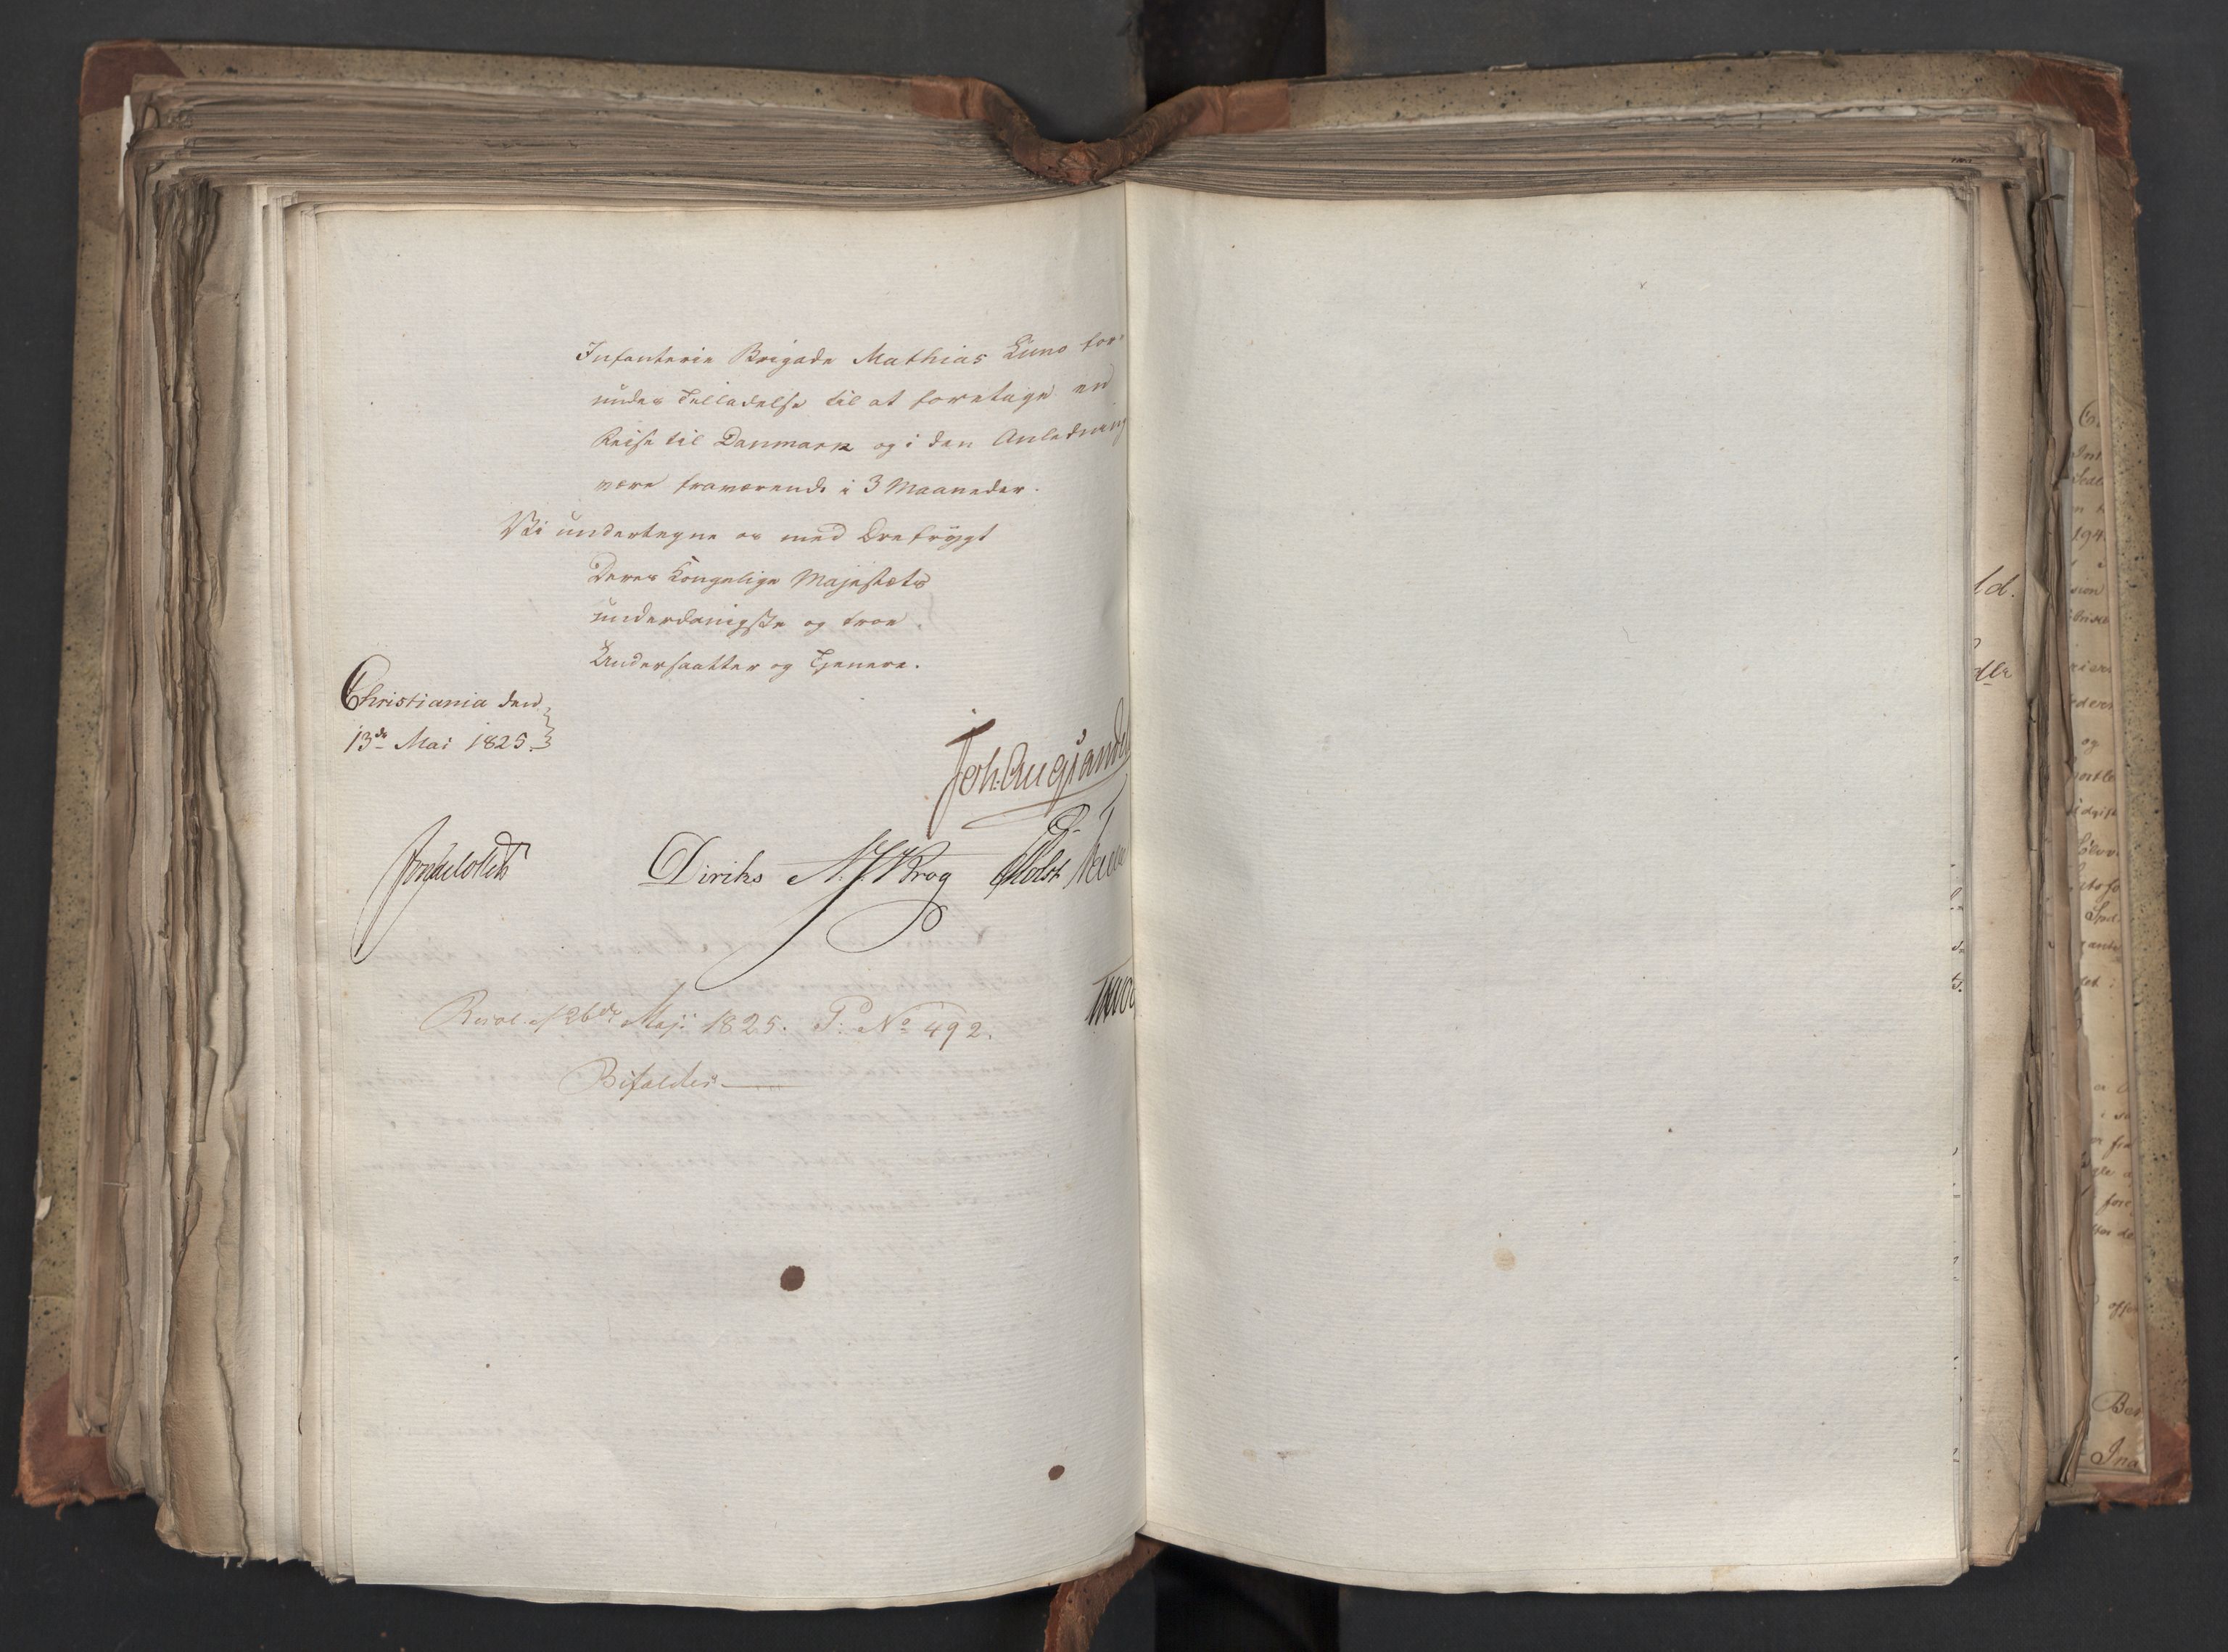 Infanterie Brigade Mathias Luno for-
undes Tilladelse til at foretage en
Reise til Danmark og i den Anledning
være fraværende i 3 Maaneder.
Vi undertegne os med Ærefrygt
Deres Kongelige Majestæts
underdanigste og troe
Undersaatter og Tjenere.
Christiania den
13de Mai 1825.
Joh. Aug. Sandel
Jonas Collett Diriks N. J. Krog P. Holst
Resol. af 26de Maji 1825. P: No 492.
Bifaldes